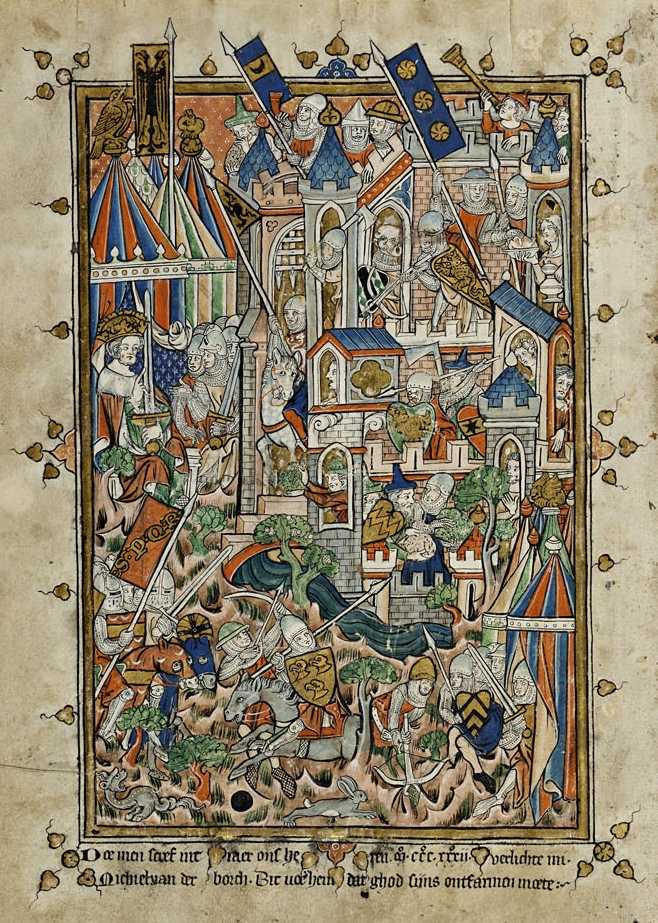 S·P·Q·R
Doe men screef int iaer ons heren. m. ccc. xxxii. verlichte mi.
Michiel van der borch. Bit voer hem dat ghod sijns ontfarmen moete:~